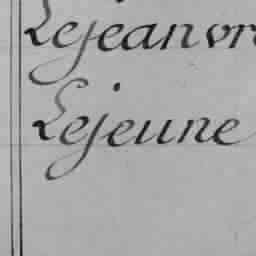 Lejeanvre
Lejeune